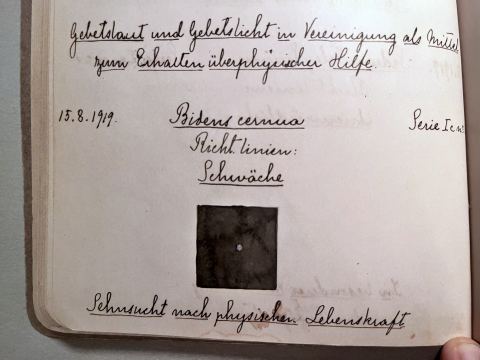 Gebetslaut und Gebetslicht in Vereinigung als Mittel
zum Erhalten überphysischer Hilfe.
15.8.1919. Bidens cernua Serie I c
Richtlinien:
Schwäche
Sehnsucht nach physischer Lebenskraft